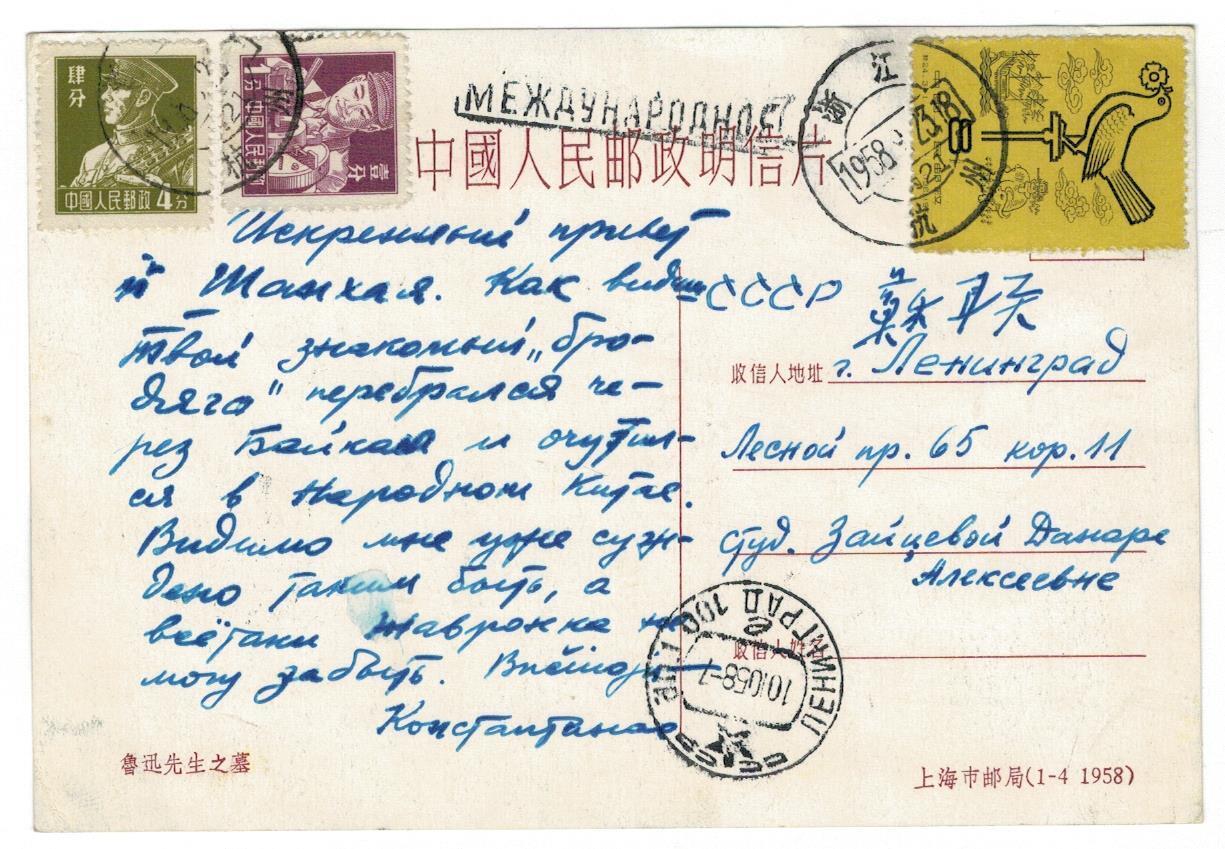 肆分
中國人民郵政 4分
中國人民郵政
壹分
杭州
МЕЖДУНАРОДНОЕ
中國人民邮政明信片
浙江
1958
杭州
Искренный привет
из Шанхая. Как видишь
твой знакомый „бро-
дяга" перебрался че-
рез Байкал и очутил-
ся в Народном Китае.
Видимо мне уже суж-
дено таким быть, а
всётаки Жавронка не
могу забыть.
СССР 蘇联
收信人地址 г. Ленинград
Лесной пр. 65 кор. 11
студ. Зайцевой Данаре
Алексеевне
收信人姓名
ЛЕНИНГРАД 100
101058-7
СССР
魯迅先生之墓
上海市邮局(1-4 1958)